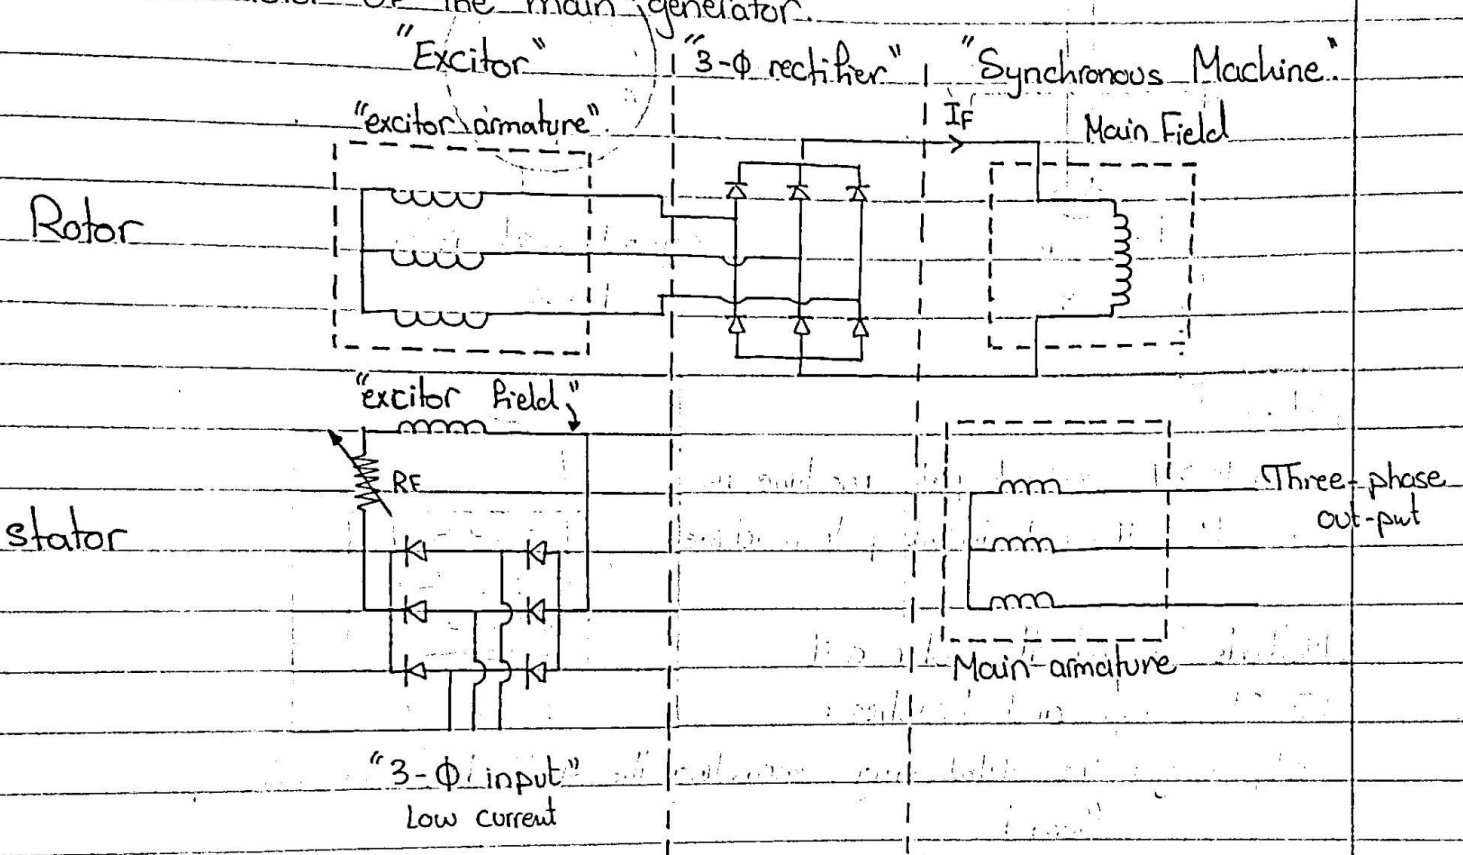 of the main generator.
"Excitor"
"3-Φ rectifier"
"Synchronous Machine"
"excitor armature".
IF
Main Field
Rotor
"excitor field"
RF
Three-phase
out-put
stator
Main-armature
"3-Φ input"
Low current